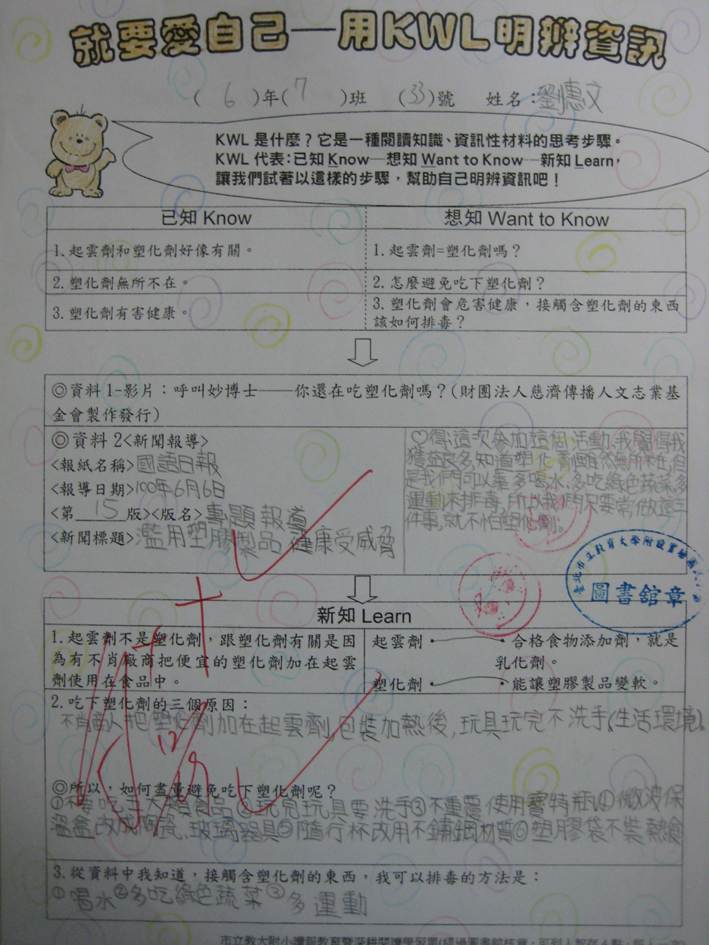 就要愛自己—用KWL明辨資訊
( 6 )年( 7 )班 (33)號 姓名:劉惠文
KWL 是什麼?它是一種閱讀知識、資訊性材料的思考步驟。
KWL 代表:已知 Know─想知 Want to Know─新知 Learn,
讓我們試著以這樣的步驟,幫助自己明辨資訊吧!
已知 Know
想知 Want to Know
1.起雲劑和塑化劑好像有關。
1.起雲劑=塑化劑嗎?
2.塑化劑無所不在。
2.怎麼避免吃下塑化劑?
3.塑化劑有害健康。
3.塑化劑會危害健康,接觸含塑化劑的東西
該如何排毒?
◎資料1-影片:呼叫妙博士——你還在吃塑化劑嗎?(財團法人慈濟傳播人文志業基
金會製作發行)
◎資料2<新聞報導>
<報紙名稱>國語日報
<報導日期>100年6月6日
<第 15 版><版名>專題報導
<新聞標題>濫用塑膠製品 健康受威脅
♡得:這次參加這個活動,我覺得我
獲益良多,知道塑化劑雖然無所不在,但
是我們可以靠多喝水、多吃綠色蔬菜、多
運動來排毒,所以我們只要常做這三
件事,就不怕塑化劑。
圖書館章
新知 Learn
1.起雲劑不是塑化劑,跟塑化劑有關是因
為有不肖廠商把便宜的塑化劑加在起雲
劑使用在食品中。
起雲劑・ ・合格食物添加劑,就是
乳化劑。
塑化劑・ ・能讓塑膠製品變軟。
2.吃下塑化劑的三個原因:
不肖商人把塑化劑加在起雲劑,包裝加熱後,玩具玩完不洗手(生活環境)。
◎所以,如何盡量避免吃下塑化劑呢?
①不要吃五大類食品②玩完玩具要洗手③不重覆使用寶特瓶④微波保
溫盒改成陶瓷、玻璃器具⑤隨行杯改用不鏽鋼材質⑥塑膠袋不裝熱食
3.從資料中我知道,接觸含塑化劑的東西,我可以排毒的方法是:
①喝水②多吃綠色蔬菜③多運動